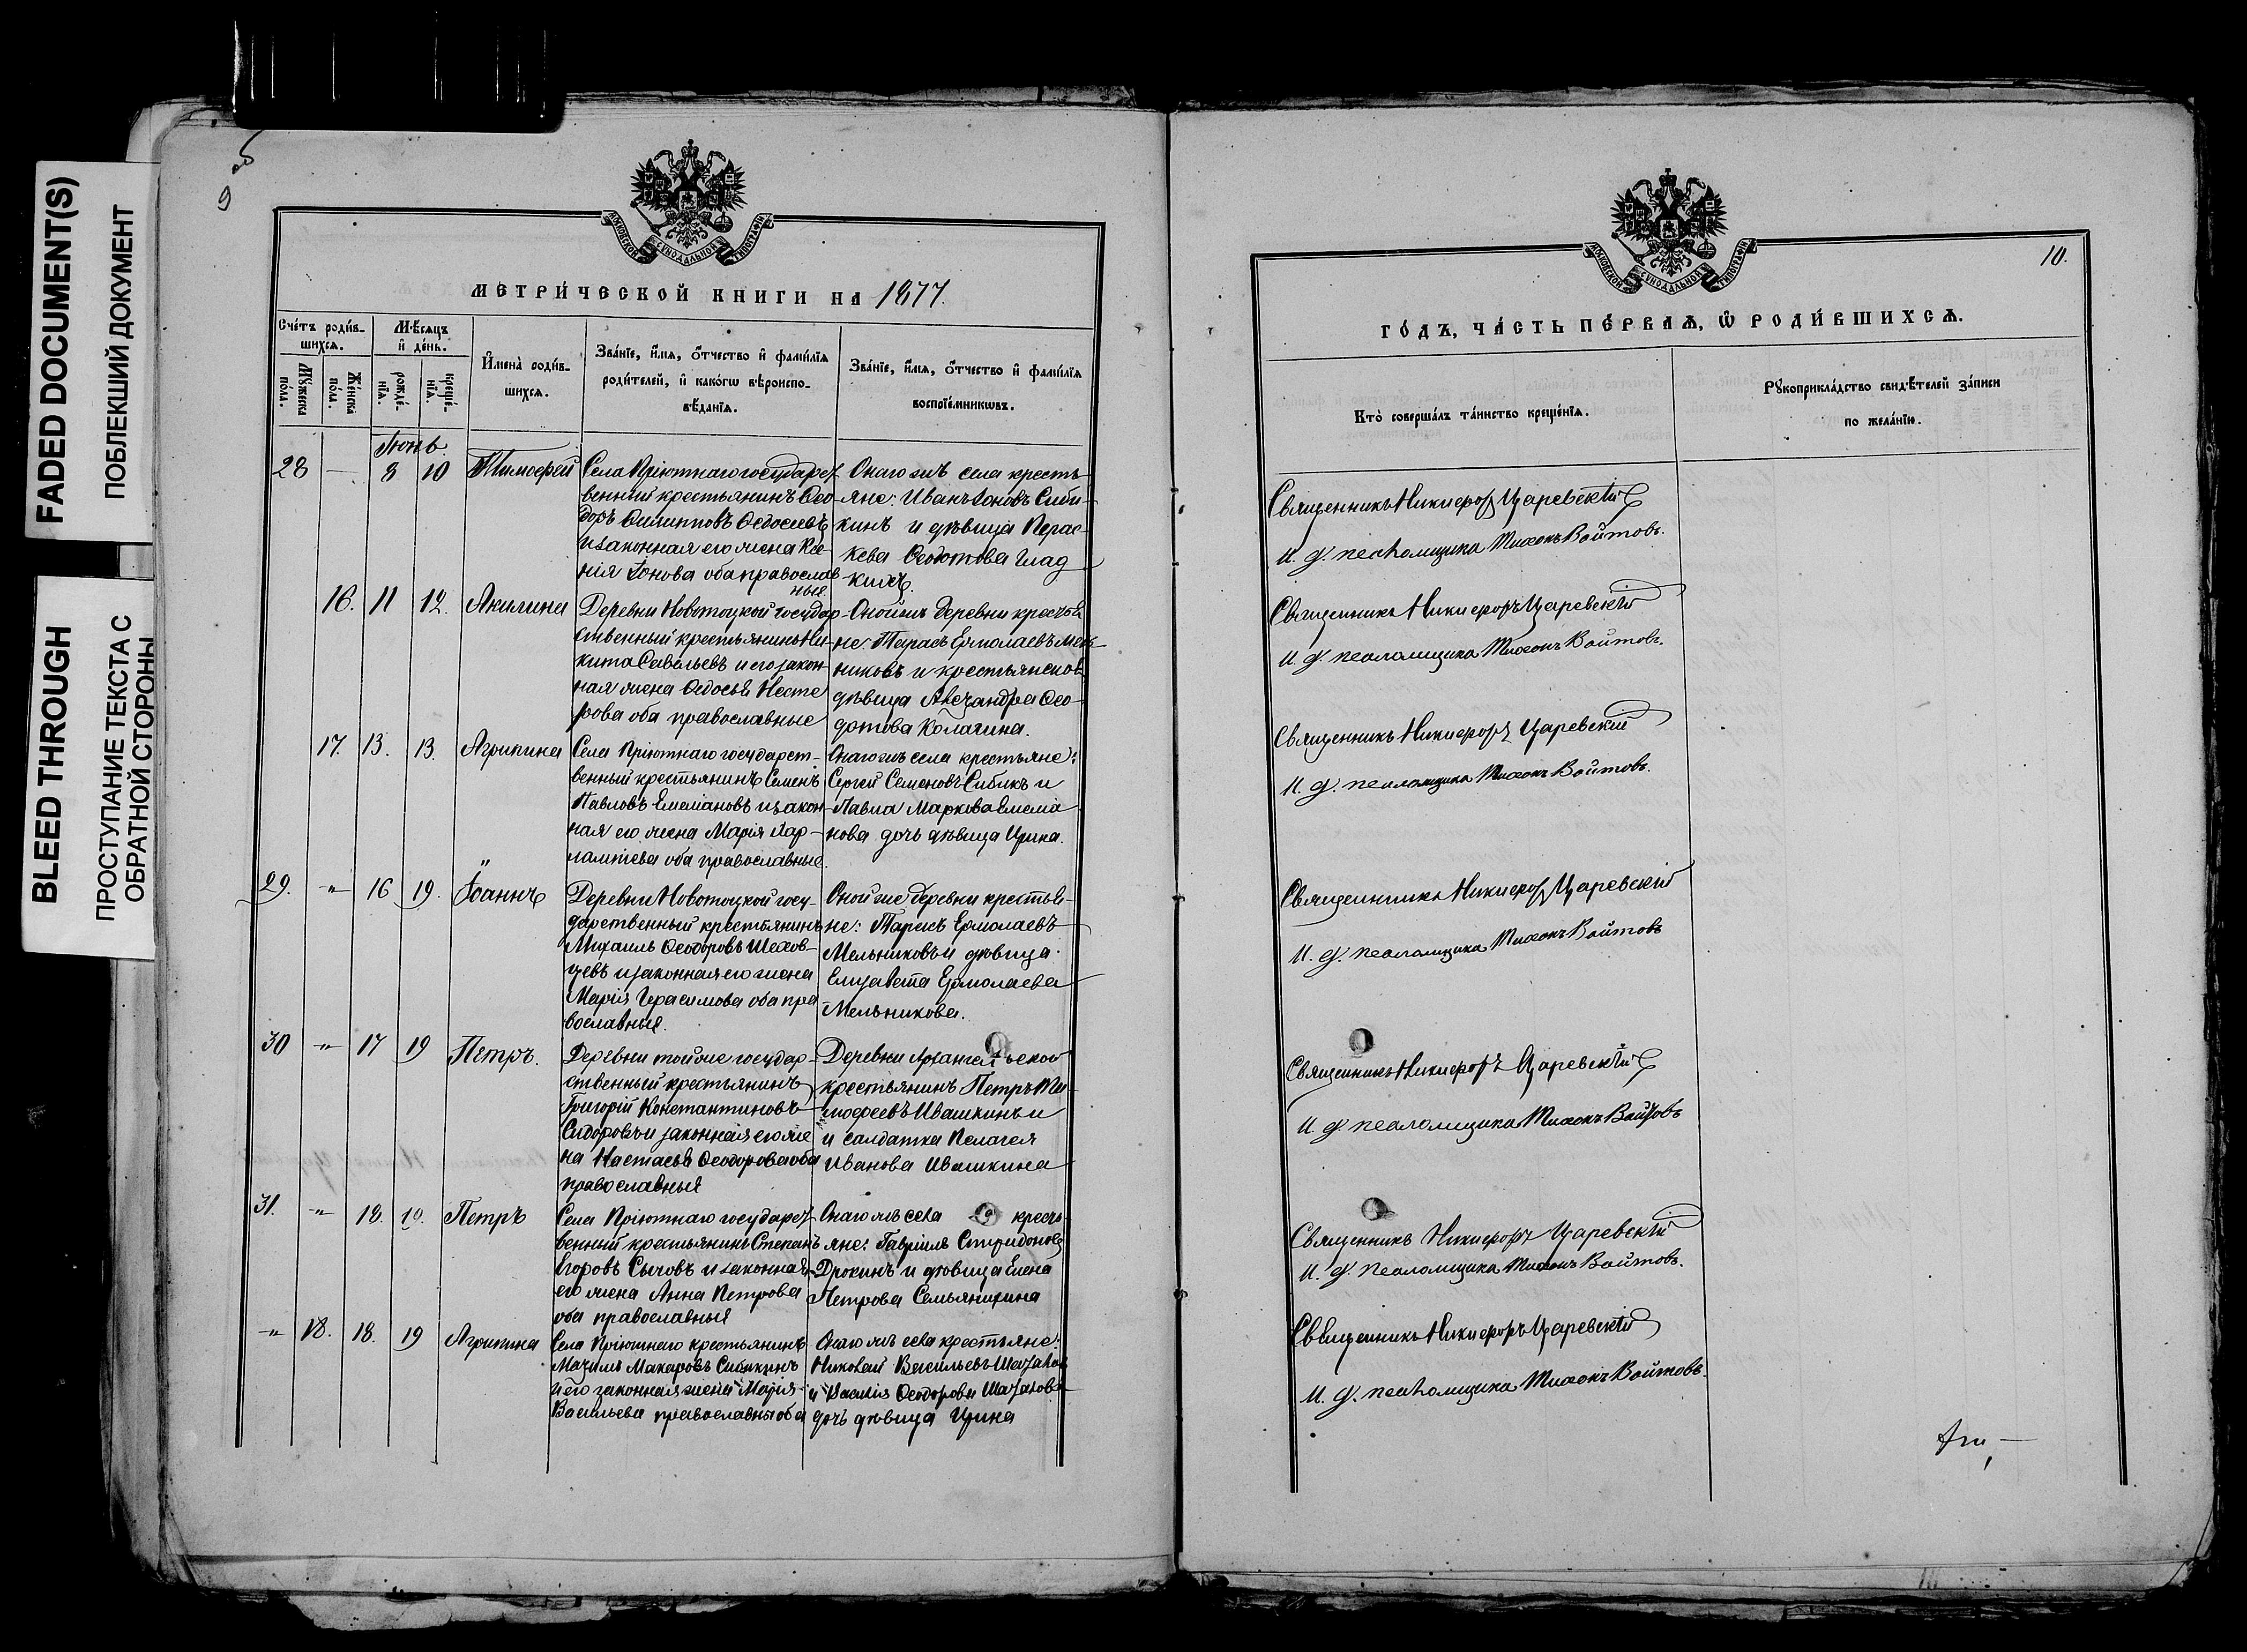 FADED DOCUMENT(S)
ПОБЛЕКШИЙ ДОКУМЕНТ
BLEED THROUGH
ПРОСТУПАНИЕ ТЕКСТА С
ОБРАТНОЙ СТОРОНЫ
9 об
МОСКОВСКОЙ СѴНОДАЛЬНОЙ ТИПОГРАФІИ
МЕТРИ́ЧЕСКОЙ КНИГИ НА 1877.
Сче́тъ роди́в-
шихсѧ.
Мѣ́сѧцъ
и҆ де́нь.
Мꙋ́жеска
по́ла.
Же́нска
по́ла.
рожде́-
нїѧ.
креще́-
нїѧ.
И҆мена̀ роди́в-
шихсѧ.
Зва́нїе, и҆́мѧ, ѻ҆́тчество и҆ фами́лїѧ
роди́телей, и҆ како́гѡ вѣроиспо-
вѣ́данїѧ.
Зва́нїе, и҆́мѧ, ѻ҆́тчество и҆ фами́лїѧ
воспрїе́мникѡвъ.
Іюнь.
28 — 8 10 Тимоѳей
Села Пріютнаго государст-
венный крестьянинъ Ѳео-
доръ Филипповъ Ѳедосеевъ
и законная его жена Ксе-
нія Іонова оба православ
ныя.
Онаго жъ села кресть-
яне: Иванъ Іоновъ Сиби-
кинъ и дѣвица Парас-
кева Ѳедотова Глад
кихъ.
16. 11 12. Акилина
Деревни Новотоцкой государ-
ственный крестьянинъ Ни-
кита Савельевъ и его закон-
ная жена Ѳедосья Несте
рова оба православные
Оной жъ деревни крестья
не: Тарасъ Ермолаевъ Мель
никовъ и крестьянская
дѣвица Александра Ѳео-
дотова Калагина.
17. 13. 13. Агрипина
Села Пріютнаго государст-
венный крестьянинъ Семенъ
Павловъ Емеліановъ и закон
ная его жена Марія Хар-
лампіева оба православные.
Онаго жъ села крестьяне:
Сергей Семеновъ Сибикъ и
Павла Маркова Емелiа
нова дочь дѣвица Ирина.
29. -"- 16 19. Іоаннъ
Деревни Новотоцкой госу-
дарственный крестьянинъ
Михаилъ Ѳеодоровъ Шехов-
цевъ и законная его жена
Марія Герасимова оба пра
вославныя.
Оной же деревни крестья-
не: Тарасъ Ермолаевъ
Мельниковъ и дѣвица
Елизавета Ермолаева
Мельникова.
30 -"- 17 19 Петръ.
Деревни той же государ-
ственный крестьянинъ
Григорій Константиновъ
Сидоровъ и законная его же
на Настасья Ѳеодорова оба
православныя
Деревни Архангельской
крестьянинъ Петръ Ти-
моѳеевъ Ивашкинъ и
и салдатка Пелагея
Иванова Ивашкина
31. -"- 18. 19. Петръ
Села Пріютнаго государст
венный крестьянинъ Степанъ
Егоровъ Сычовъ и законная
его жена Анна Петрова
оба православныя
Онаго жъ села кресть-
яне: Гавріилъ Спиридоновъ
Дрокинъ и дѣвица Елена
Петрова Семьянихина
-"- 18. 18. 19 Агрипина
Села Пріютнаго крестьянинъ
Макаровъ Сибикинъ
и его законная жена Марія
Васильева православны оба
Онаго жъ села крестьяне:
Николай Васильевъ
и Василія Ѳеодорова
дочь дѣвица Ирина
МОСКОВСКОЙ СѴНОДАЛЬНОЙ ТИПОГРАФІИ
10.
ГО́ДЪ, ЧА́СТЬ ПЕ́РВАѦ, Ѽ РОДИ́ВШИХСѦ.
Кто̀ соверша́лъ та́инство креще́нїѧ.
Рꙋкоприкла́дство свидѣ́телей за́писи
по жела́нїю.
Священникъ Никифоръ Царевскій
И. д. псаломщика Тихонъ Войтовъ.
Священникъ Никифоръ Царевскій
И. д. псаломщика Тихонъ Войтовъ.
Священникъ Никифоръ Царевскій
И. д. псаломщика Тихонъ Войтовъ.
Священникъ Никифоръ Царевскій
И. д. псаломщика Тихонъ Войтовъ
Священникъ Никифоръ Царевскій
И. д. псаломщика Тихонъ Войтовъ
Священникъ Никифоръ Царевскій
И. д. псаломщика Тихонъ Войтовъ.
Священникъ Никифоръ Царевскій
И. д. псаломщика Тихонъ Войтовъ.